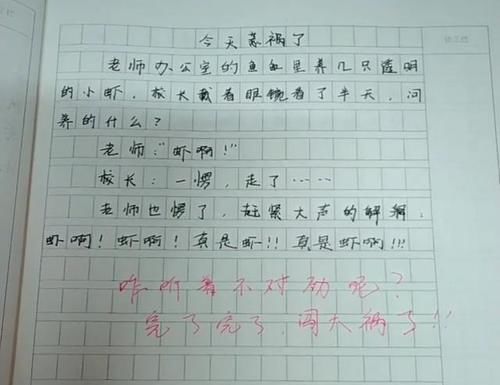 今天惹祸了
老师办公室的鱼缸里养几只透明
的小虾，校长戴着眼镜看了半天，问
养的什么？
老师："虾啊！"
校长：一愣，走了……
老师也愣了，赶紧大声的解释：
虾啊！虾啊！真是虾！！真是虾啊！！！
咋听着不对劲呢？
完了完了，闯大祸了！！